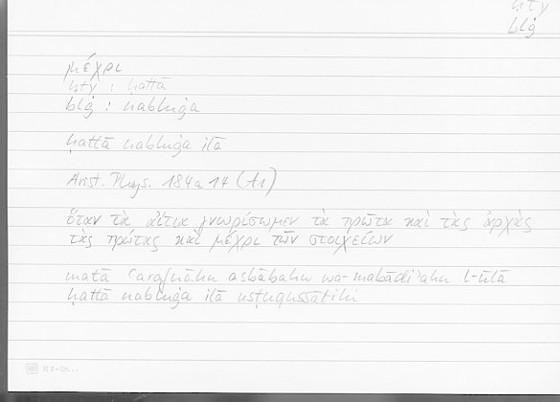 ḥty
blġ
μέχρι
ḥty : ḥattā
blġ : nabluġa
ḥattā nabluġa ilā
Arist. Phys. 184a14 (A1)
ὅταν τὰ αἴτια γνωρίσωμεν τὰ πρῶτα καὶ τὰς ἀρχὰς
τὰς πρώτας καὶ μέχρι τῶν στοιχείων
matā ʿarafnāhu asbābahu wa-mabādiʾahu l-ūlā
ḥattā nabluġa ilā usṭuqussātihi